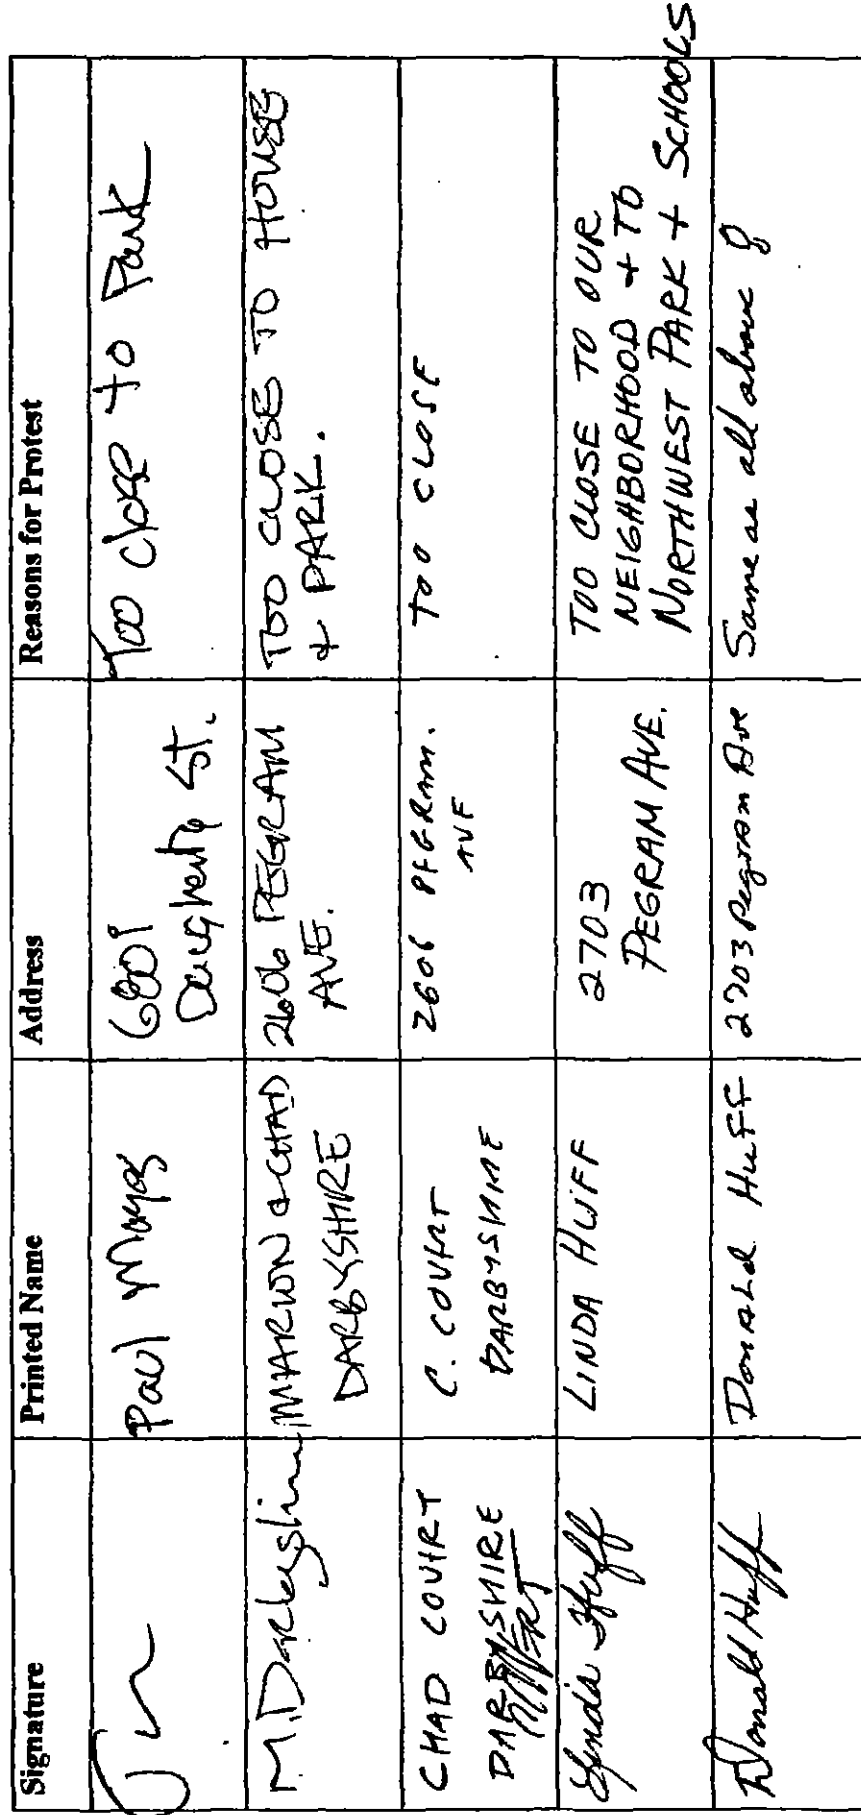 Signature Printed Name Address Reasons for Protest
Paul Mayes 6801 Daugherty St. Too close to Park
M Darbyshire MARION & CHAD DARBYSHIRE 2606 PEGRAM AVE. TOO CLOSE TO HOUSE
& PARK.
CHAD COVERT DARBYSHIRE C. COVERT DARBYSHIRE 2606 PEGRAM. AVE TOO CLOSE
Linda Huff LINDA HUFF 2703 PEGRAM AVE. TOO CLOSE TO OUR
NEIGHBORHOOD & TO
NORTHWEST PARK + SCHOOLS
Donald Huff Donald Huff 2703 Pegram Ave Same as all above